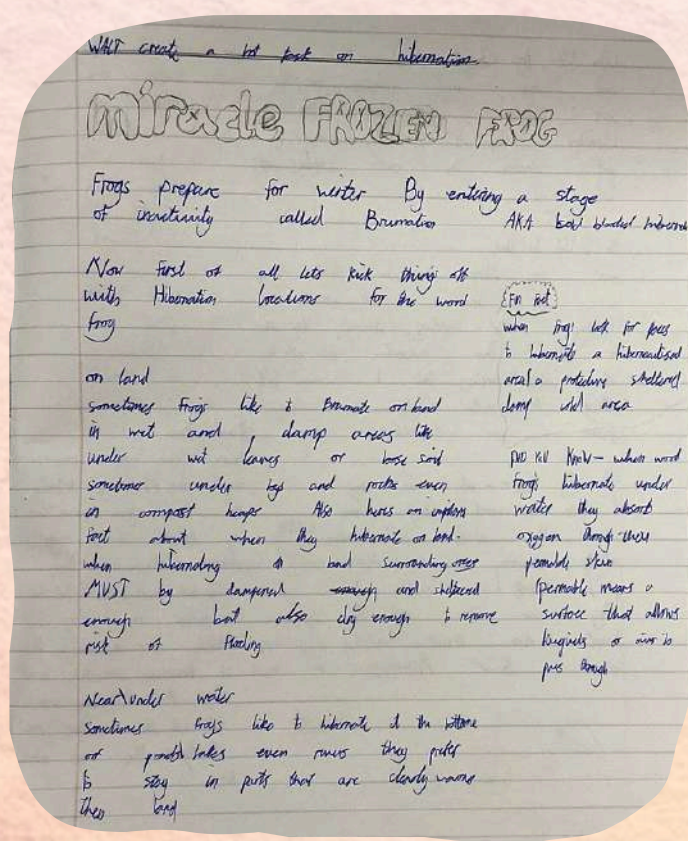 WALT create a hot task on hibernation.
miracle FROZEN FROG
Frogs prepare for winter By entering a stage
of inactivity called Brumation AKA blooded
Now first of all lets kick thing off
with Hibernation locations for the wood
frog
on land
sometimes Frogs like to Brumate on land
in wet and damp areas like
under wet leaves or loose soil
under logs and rocks even
in compost heaps Also heres an
fact about when they hibernate on land.
when hibernating land surrounding
MUST by dampened enough and sheltered
enough but also dry enough to remove
risk of flooding
Near\under water
Sometimes Frogs like to hibernate at the
of lakes even they prefer
to stay in parts that are clearly
then land
when frogs look for
to hibernate a
area/a sheltered
damp area
DID YOU Know- when wood
frogs hibernate under
water they absorb
oxygen through they
permable skin
(permable means a
surface that allows
or to
pass through